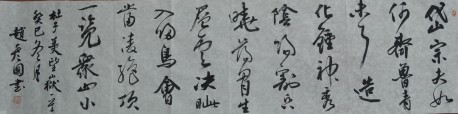 岱宗夫如
何齊魯青
未了造
化鍾神秀
陰陽割昏
曉蕩胷生
層雲決眦
入歸鳥會
當凌絕頂
一覽衆山小
杜子美望嶽一
癸巳冬月
趙彦國書